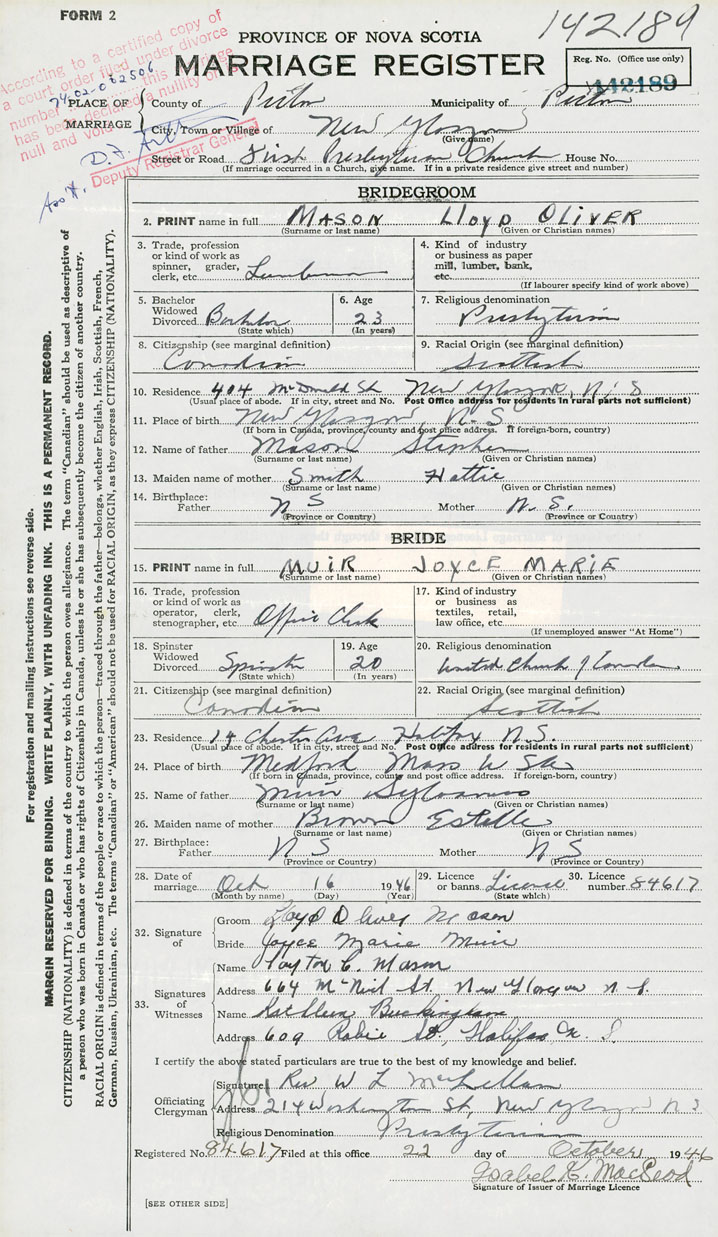 FORM 2
142189
PROVINCE OF NOVA SCOTIA
MARRIAGE REGISTER
Reg. No. (Office use only)
142189
According to a certified copy of
a court order filed under divorce
number 74-02-002506 this marriage
has been declared a nullity or is
null and void.
Deputy Registrar General
Ass't.
PLACE OF MARRIAGE
County of Pictou Municipality of Pictou
City, Town or Village of New Glasgow
(Give name)
Street or Road First Presbyterian Church House No.
(If marriage occurred in a Church, give name. If in a private residence give street and number)
BRIDEGROOM
2. PRINT name in full MASON LLOYD OLIVER
(Surname or last name) (Given or Christian names)
3. Trade, profession or kind of work as spinner, grader, clerk, etc. Lumberman
4. Kind of industry or business as paper mill, lumber, bank, etc.
(If labourer specify kind of work above)
5. Bachelor Widowed Divorced Bachelor
(State which)
6. Age 23
(In years)
7. Religious denomination Presbyterian
8. Citizenship (see marginal definition) Canadian
9. Racial Origin (see marginal definition) Scottish
10. Residence 404 McDonald St New Glasgow, N.S
(Usual place of abode. If in city, street and No. Post Office address for residents in rural parts not sufficient)
11. Place of birth New Glasgow, N.S
(If born in Canada, province, county and post office address. If foreign-born, country)
12. Name of father Mason Stephen
(Surname or last name) (Given or Christian names)
13. Maiden name of mother Smith Hattie
(Surname or last name) (Given or Christian names)
14. Birthplace: Father N S Mother N. S.
(Province or Country) (Province or Country)
BRIDE
15. PRINT name in full MUIR JOYCE MARIE
(Surname or last name) (Given or Christian names)
16. Trade, profession or kind of work as operator, clerk, stenographer, etc. Office Clerk
17. Kind of industry or business as textiles, retail, law office, etc.
(If unemployed answer "At Home")
18. Spinster Widowed Divorced Spinster
(State which)
19. Age 20
(In years)
20. Religious denomination United Church of Canada
21. Citizenship (see marginal definition) Canadian
22. Racial Origin (see marginal definition) Scottish
23. Residence 14 Chester Ave Halifax N.S.
(Usual place of abode. If in city, street and No. Post Office address for residents in rural parts not sufficient)
24. Place of birth Medford Mass U Sa
(If born in Canada, province, county and post office address. If foreign-born, country)
25. Name of father Muir Sylvanus
(Surname or last name) (Given or Christian names)
26. Maiden name of mother Brown Estelle
(Surname or last name) (Given or Christian names)
27. Birthplace: Father N S Mother N S
(Province or Country) (Province or Country)
28. Date of marriage Oct 16 1946
(Month by name) (Day) (Year)
29. Licence or banns License
(State which)
30. Licence number 84617
32. Signature of
Groom Lloyd Oliver Mason
Bride Joyce Marie Muir
33. Signatures of Witnesses
Name Layton C. Mason
Address 664 McNeil St. New Glasgow N.S.
Name Kathleen Buckingham
Address 609 Robie St., Halifax N. S
I certify the above stated particulars are true to the best of my knowledge and belief.
Officiating Clergyman
Signature Rev W L McLellan
Address 214 Washington St, New Glasgow N S
Religious Denomination Presbyterian
Registered No. 84617 Filed at this office 22 day of October 1946
Isabel K. MacLeod
Signature of Issuer of Marriage Licence
[SEE OTHER SIDE]
For registration and mailing instructions see reverse side.
MARGIN RESERVED FOR BINDING. WRITE PLAINLY, WITH UNFADING INK. THIS IS A PERMANENT RECORD.
CITIZENSHIP (NATIONALITY) is defined in terms of the country to which the person owes allegiance. The term "Canadian" should be used as descriptive of
a person who was born in Canada or who has rights of Citizenship in Canada, unless he or she has subsequently become the citizen of another country.
RACIAL ORIGIN is defined in terms of the people or race to which the person—traced through the father—belongs, whether English, Irish, Scottish, French,
German, Russian, Ukrainian, etc. The terms "Canadian" or "American" should not be used for RACIAL ORIGIN, as they express CITIZENSHIP (NATIONALITY).